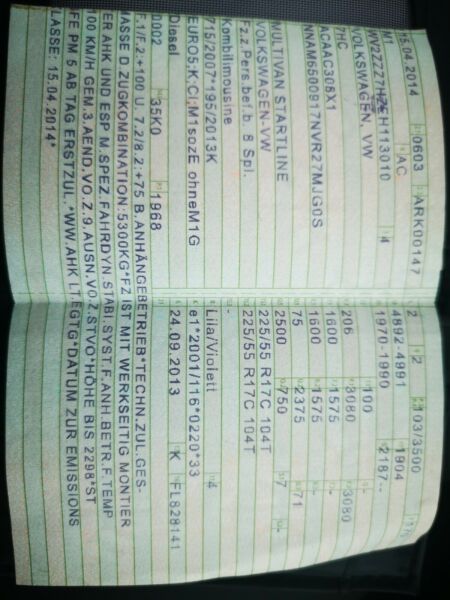 15.04.2014 0603 ARK00147
M1 AC
WV2ZZZ7HZEH113010 4
VOLKSWAGEN, VW
7HC
ACAAC308X1
NNAM6500917NVR27MJG0S
MULTIVAN STARTLINE
VOLKSWAGEN-VW
Fz.z.Pers.bef.b. 8 Spl.
Kombilimousine
715/2007*195/2013K
EURO5;K;CI;M1sozE ohneM1G
Diesel
0002 35K0 1968
2 2 103/3500
4892-4991 1904
1970-1990 2187--
- 100 -
206 3080 3080
1600 1575 -
1600 1575 -
75 2375 71
2500 750 7 -
225/55 R17C 104T
225/55 R17C 104T
-
Lila/Violett 4
e1*2001/116*0220*33
24.09.2013 K FL828141
F.1/F.2:+100 U. 7.2/8.2:+75 B.ANHÄNGEBETRIEB*TECHN.ZUL.GES-
MASSE D.ZUGKOMBINATION:5300KG*FZ IST MIT WERKSEITIG MONTIER
ER AHK UND ESP M.SPEZ.FAHRDYN.STABI.SYST.F.ANH.BETR.F.TEMP
100 KM/H GEM.3.AEND.VO.Z.9.AUSN.VO Z.STVO*HÖHE BIS 2298*ST
FE PM 5 AB TAG ERSTZUL.*WW.AHK LT.EGTG*DATUM ZUR EMISSIONS
KLASSE: 15.04.2014*